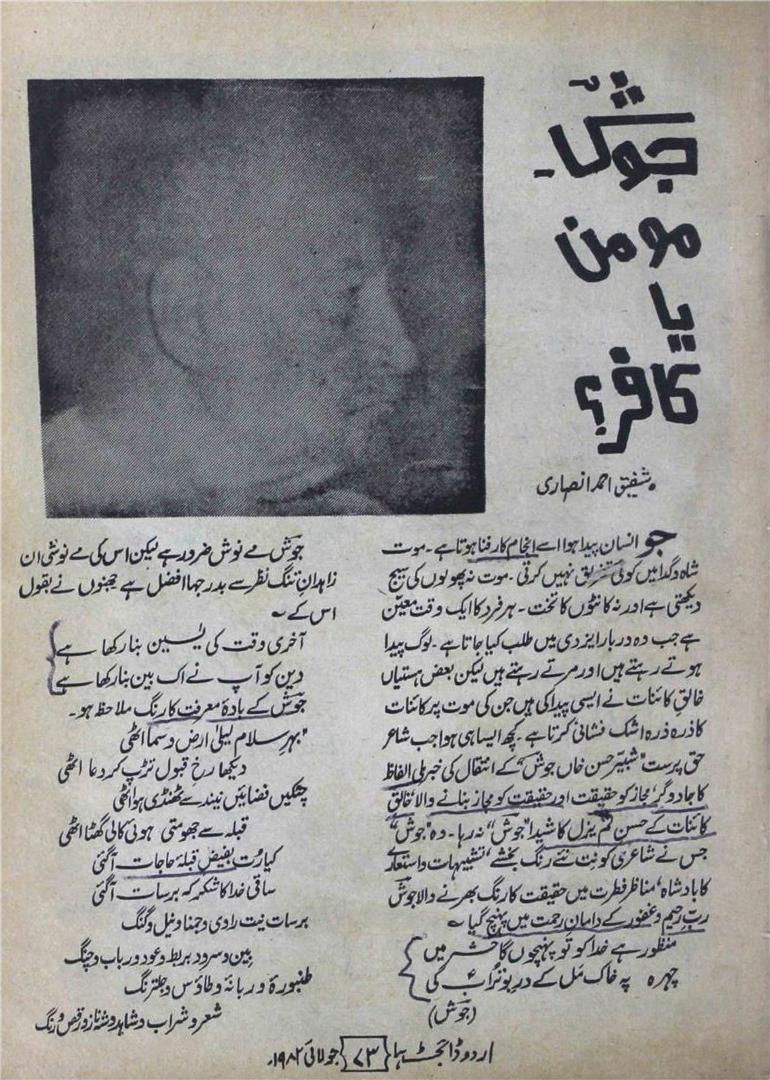 جوشؔ۔
مومن
یا
کافر؟
• شفیق احمد انصاری
جو انسان پیدا ہوا اسے انجام کار فنا ہوتا ہے۔ موت
شاہ و گدا میں کوئی تفریق نہیں کرتی۔ موت نہ پھولوں کی سیج
دیکھتی ہے اور نہ کانٹوں کا تخت۔ ہر فرد کا ایک وقت معین
ہے جب وہ دربار ایزدی میں طلب کیا جاتا ہے۔ لوگ پیدا
ہوتے رہتے ہیں اور مرتے رہتے ہیں لیکن بعض ہستیاں
خالق کائنات نے ایسی پیدا کی ہیں جن کی موت پر کائنات
کا ذرہ ذرہ اشک فشانی کرتا ہے۔ کچھ ایسا ہی ہوا جب شاعر
حق پرست "شبیر حسن خاں جوش" کے انتقال کی خبر ملی الفاظ
کا جادوگر، مجاز کو حقیقت اور حقیقت کو مجاز بنانے والا، خالق
کائنات کے حسن لم یزل کا شیدا "جوش" نہ رہا۔ وہ "جوش"
جس نے شاعری کو نِت نئے رنگ بخشے، تشبیہات و استعارے
کا بادشاہ، مناظر فطرت میں حقیقت کا رنگ بھرنے والا جوش
ربّ رحیم و غفور کے دامان رحمت میں پہنچ گیا ؎
منظور ہے خدا کو تو پہنچوں گا حشر میں
چہرہ پہ خاک مَل کے در بوترابؑ کی
(جوش)
جوشؔ مے نوش ضرور ہے لیکن اس کی مے نوشی ان
زاہدانِ تنگ نظر سے بدرجہا افضل ہے جنھوں نے بقول
اس کے ؎
آخری وقت کی یٰسین بنا رکھا ہے
دین کو آپ نے اک بین بنا رکھا ہے
جوشؔ کے بادۂ معرفت کا رنگ ملاحظہ ہو۔
"بہرِ سلام لیلیٰ ارض و سما اٹھی
دیکھا رخ قبول تڑپ کر دعا اٹھی
چٹکیں فضائیں نیند سے ٹھنڈی ہوا اٹھی
قبلہ سے جھومتی ہوئی کالی گھٹا اٹھی
کیا رُت بفیض قبلۂ حاجات آگئی
ساقی خدا کا شکر کہ برسات آگئی
برسات نیت راوی و جمنا و نیل و گنگ
بین و سرود بربط و عود و رباب و چنگ
طنبورۂ و ربانۂ و طاؤس و جلترنگ
شعر و شراب و شاہد و شہناز و رقص و رنگ
اردو ڈائجسٹ ہما {۷۳} جولائی ۱۹۸۲ء